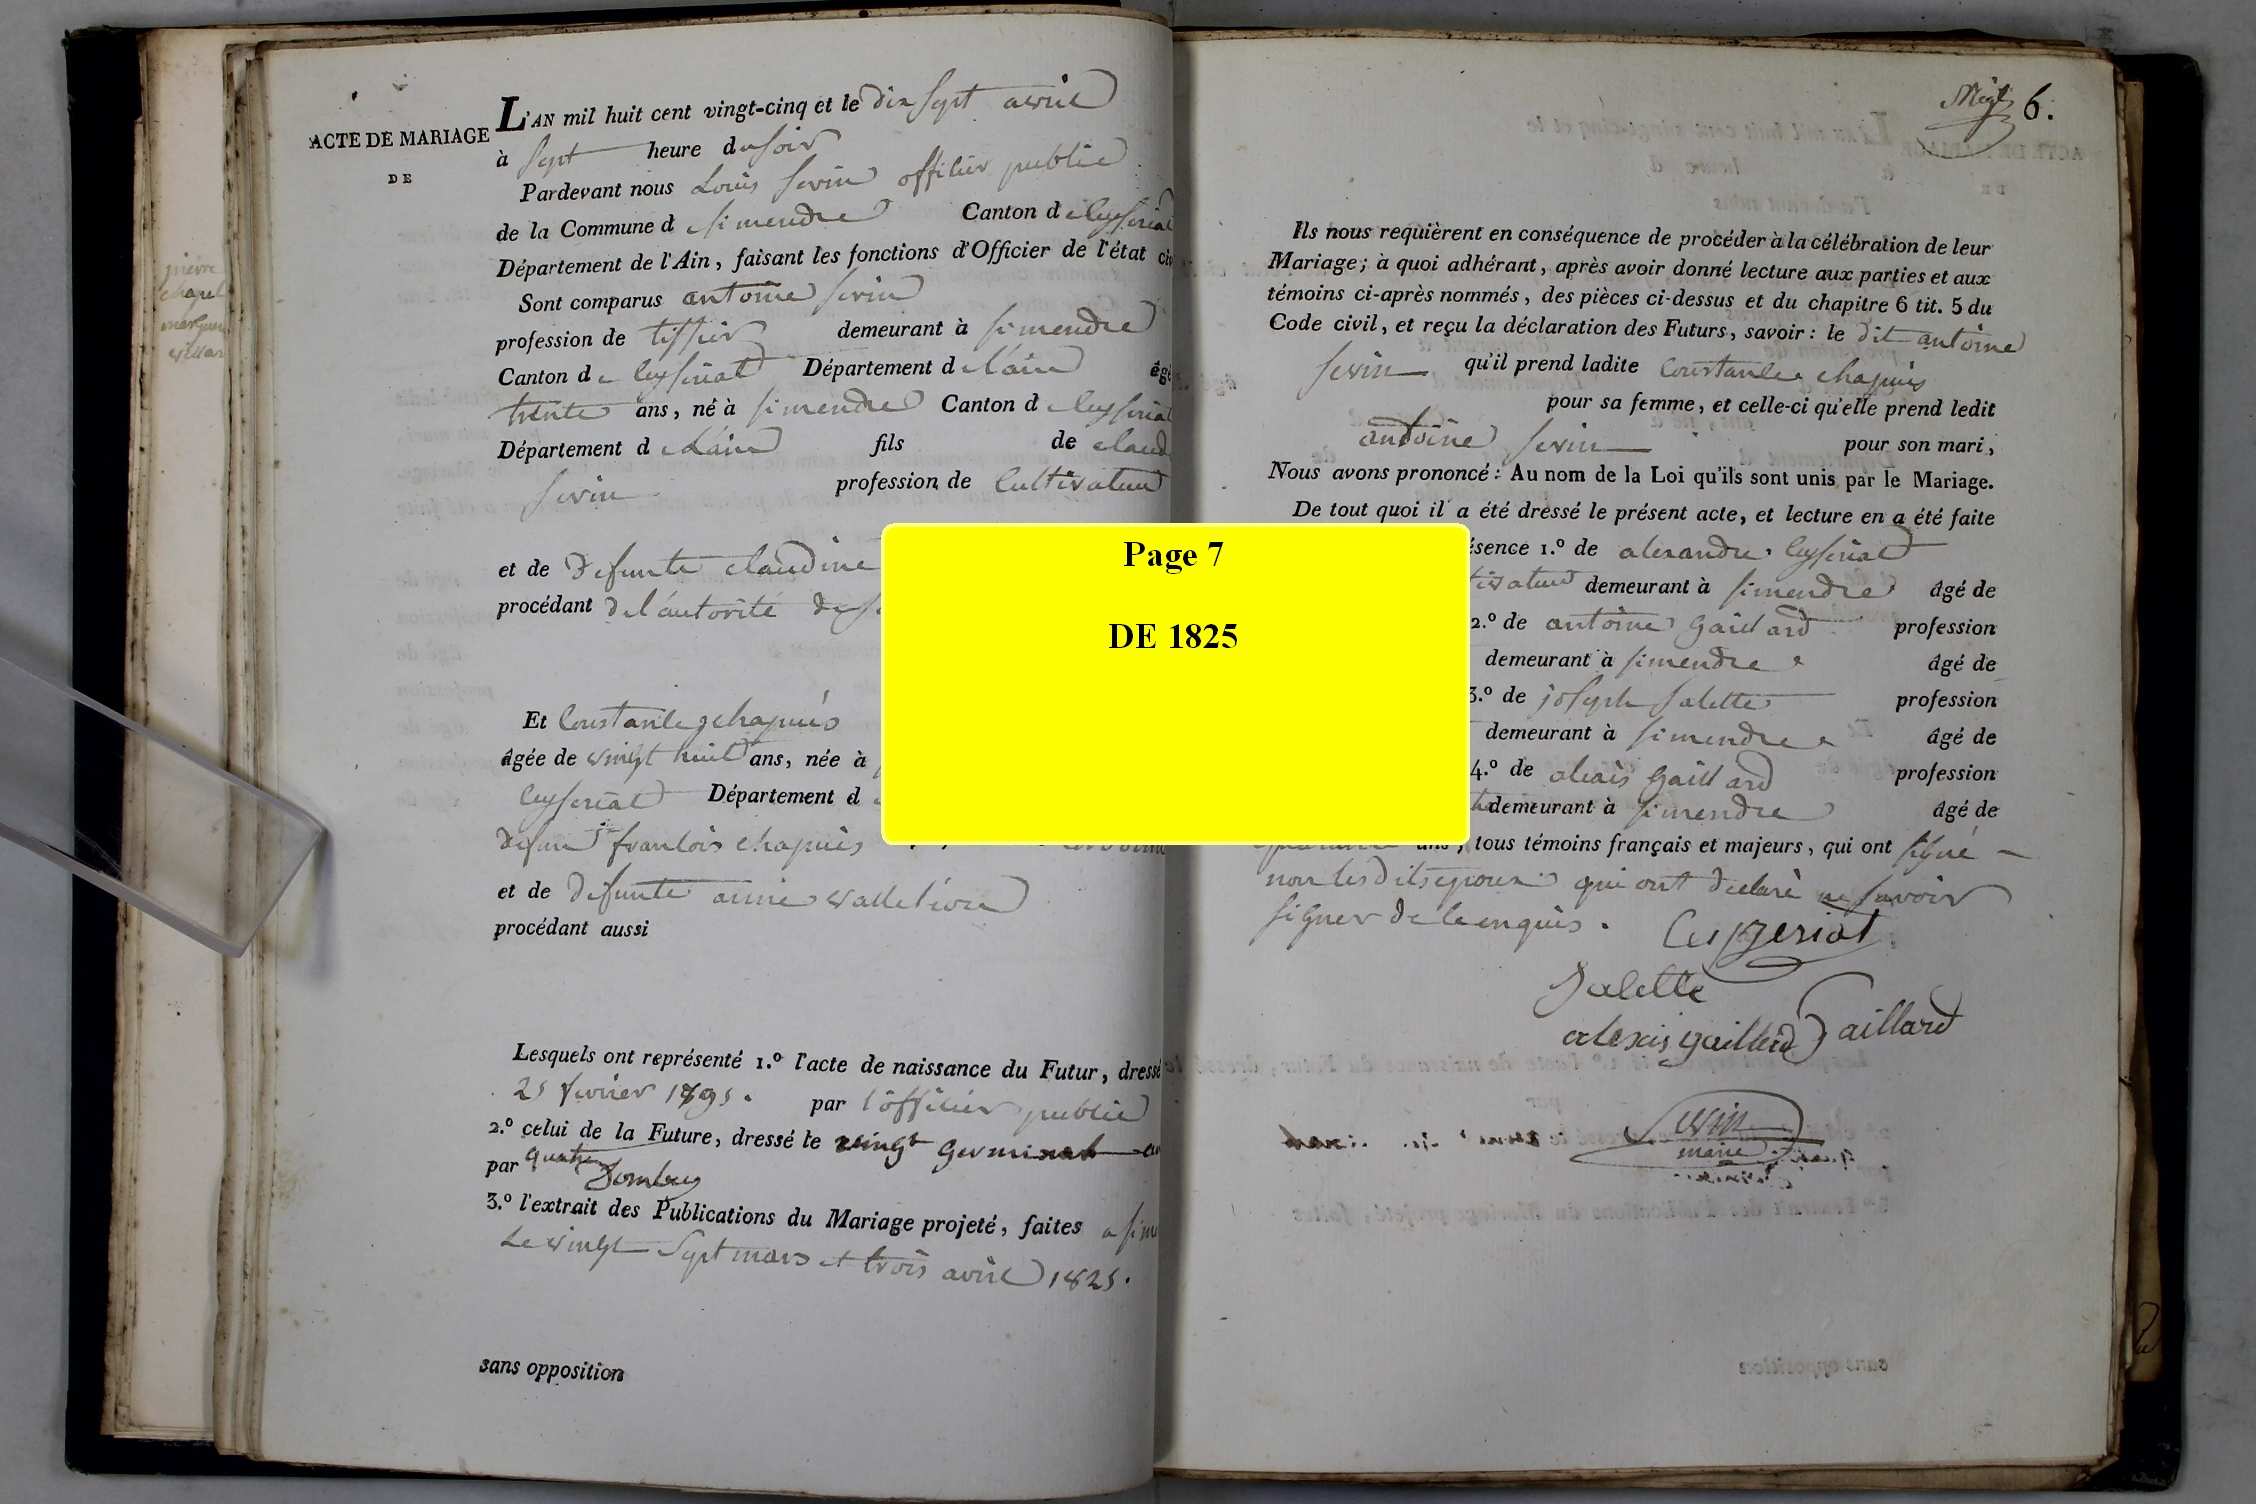 ACTE DE MARIAGE
DE
L'AN mil huit cent vingt-cinq et le dix sept avril
à sept heure du soir
Pardevant nous Louis sevin officier public
de la Commune d simendre Canton de Ceyseriat
Département de l'Ain, faisant les fonctions d'Officier de l'état civ
Sont comparus antoine sevin
profession de tissier demeurant à simendre
Canton de Ceyseriat Département de l'ain âgé
trente ans, né à simendre Canton de Ceyseriat
Département de L'ain fils de claud
sevin profession de Cultivateur
et de defunte claudine
procédant de l'autorité de
Et Constance chapuis
âgée de vingt huit ans, née à
Ceyseriat Département d
defunt francois chapuis
et de defunte anne
procédant aussi
Lesquels ont représenté 1.º l'acte de naissance du Futur, dressé
25 fevrier 1795. par l'officier public
2.º celui de la Future, dressé le vingt germinal an
par quatre
3.º l'extrait des Publications du Mariage projeté, faites a sime
Le vingt sept mars et trois avril 1825.
sans opposition
pierre
chapel
6.
Ils nous requièrent en conséquence de procéder à la célébration de leur
Mariage; à quoi adhérant, après avoir donné lecture aux parties et aux
témoins ci-après nommés, des pièces ci-dessus et du chapitre 6 tit. 5 du
Code civil, et reçu la déclaration des Futurs, savoir: le dit antoine
sevin qu'il prend ladite Constance chapuis
pour sa femme, et celle-ci qu'elle prend ledit
antoine sevin pour son mari,
Nous avons prononcé: Au nom de la Loi qu'ils sont unis par le Mariage.
De tout quoi il a été dressé le présent acte, et lecture en a été faite
ésence 1.º de alexandre Ceyseriat
tivateur demeurant à simendre âgé de
2.º de antoine Gaillard profession
demeurant à simendre âgé de
3.º de joseph salette profession
demeurant à simendre âgé de
4.º de alexis Gaillard profession
demeurant à simendre âgé de
quarante ans, tous témoins français et majeurs, qui ont signé
non les dits epoux qui ont declaré ne savoir
signer de ce enquis.
Ceyzeriat
Salette
alexis gaillard Gaillard
Sevin
maire
Page 7
DE 1825